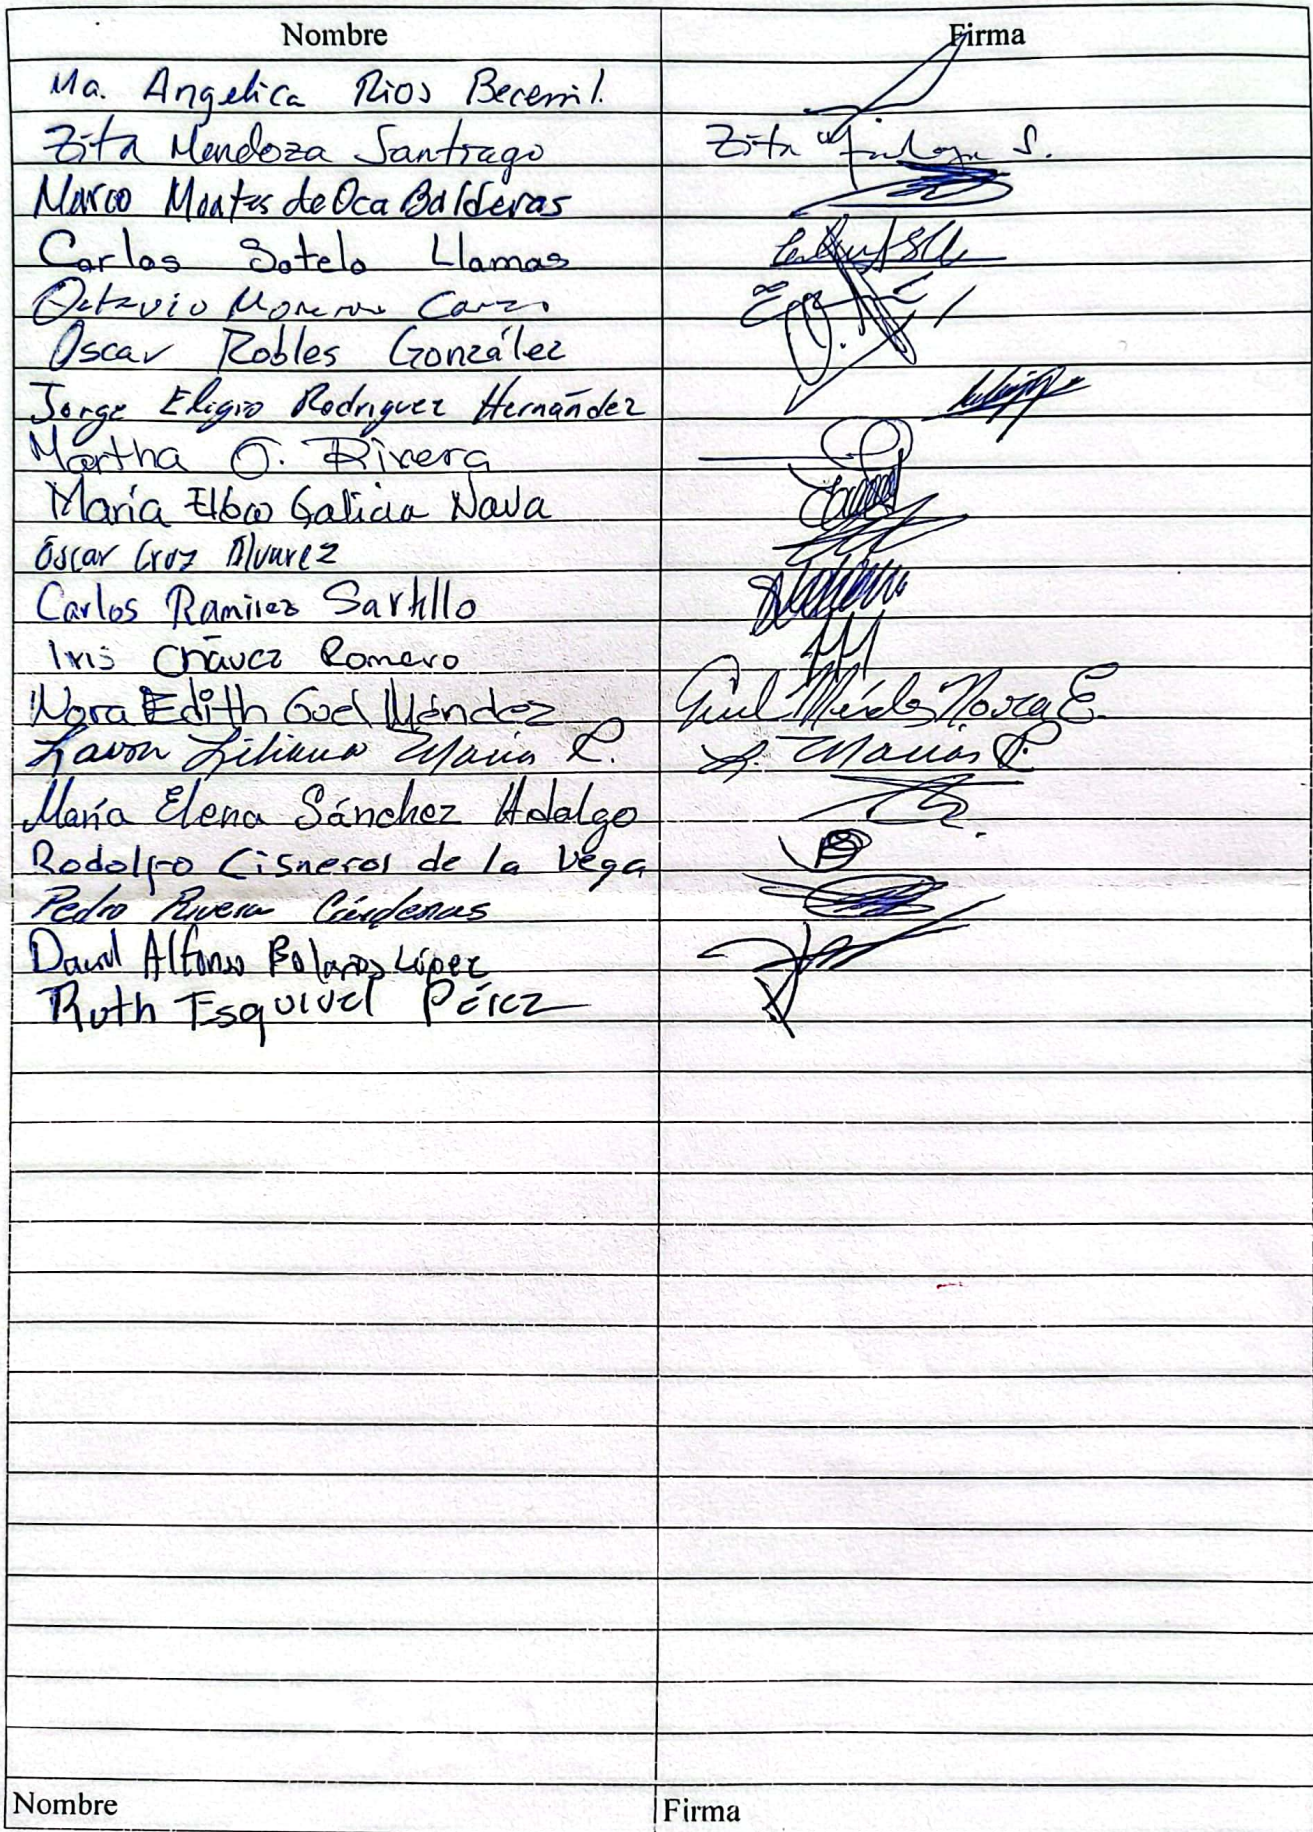 Nombre Firma
Ma. Angelica Rios Becerril.
Zita Mendoza Santiago Zita S.
Marco Montes de Oca Balderas
Carlos Sotelo Llamas
Octavio Moreno
Oscar Robles González
Jorge Eligio Rodriguez Hernández
Martha O. Rivera
María Elba Galicia Nava
Óscar Cruz Álvarez
Carlos Ramirez Sartillo
Iris Chávez Romero
Nora Edith Güel Méndez Güel Méndez Nora E.
Laura Liliana Macías R. L. Macías R.
María Elena Sánchez Hidalgo
Rodolfo Cisneros de la Vega
Pedro Rivera Cárdenas
David Alfonso Bolaños López
Ruth Esquivel Pérez
Nombre Firma